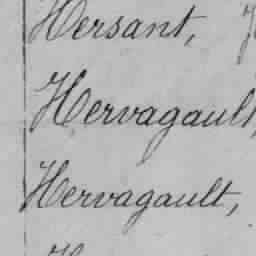 Hersant,
Hervagault,
Hervagault,